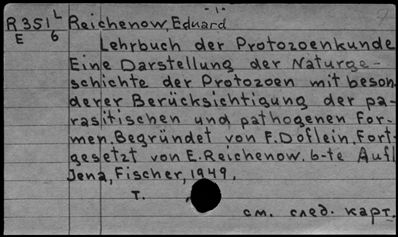 - 1 -
R351 L Reichenow, Eduard
E 6
Lehrbuch der Protozoenkunde
Eine Darstellung der Naturge-
schichte der Protozoen mit beson
derer Berücksichtigung der pa-
rasitischen und pathogenen For-
men. Begründet von F. Doflein. Fort-
gesetzt von E. Reichenow. 6-te Aufl
Jena, Fischer, 1949.
T.
см. след. карт.